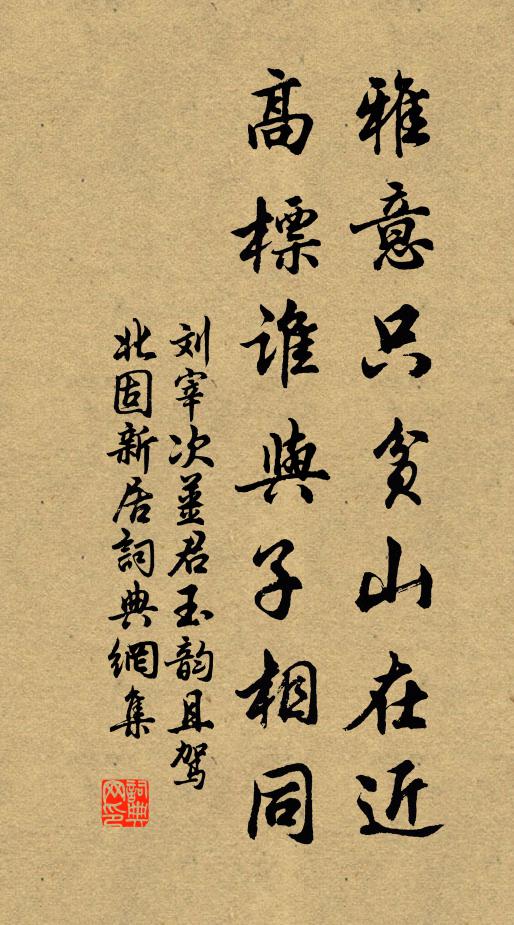 雅意只貪山在近
高標誰與子相同
刘宰次薑君玉韵且驾
北固新居詞典網集
詞典网印